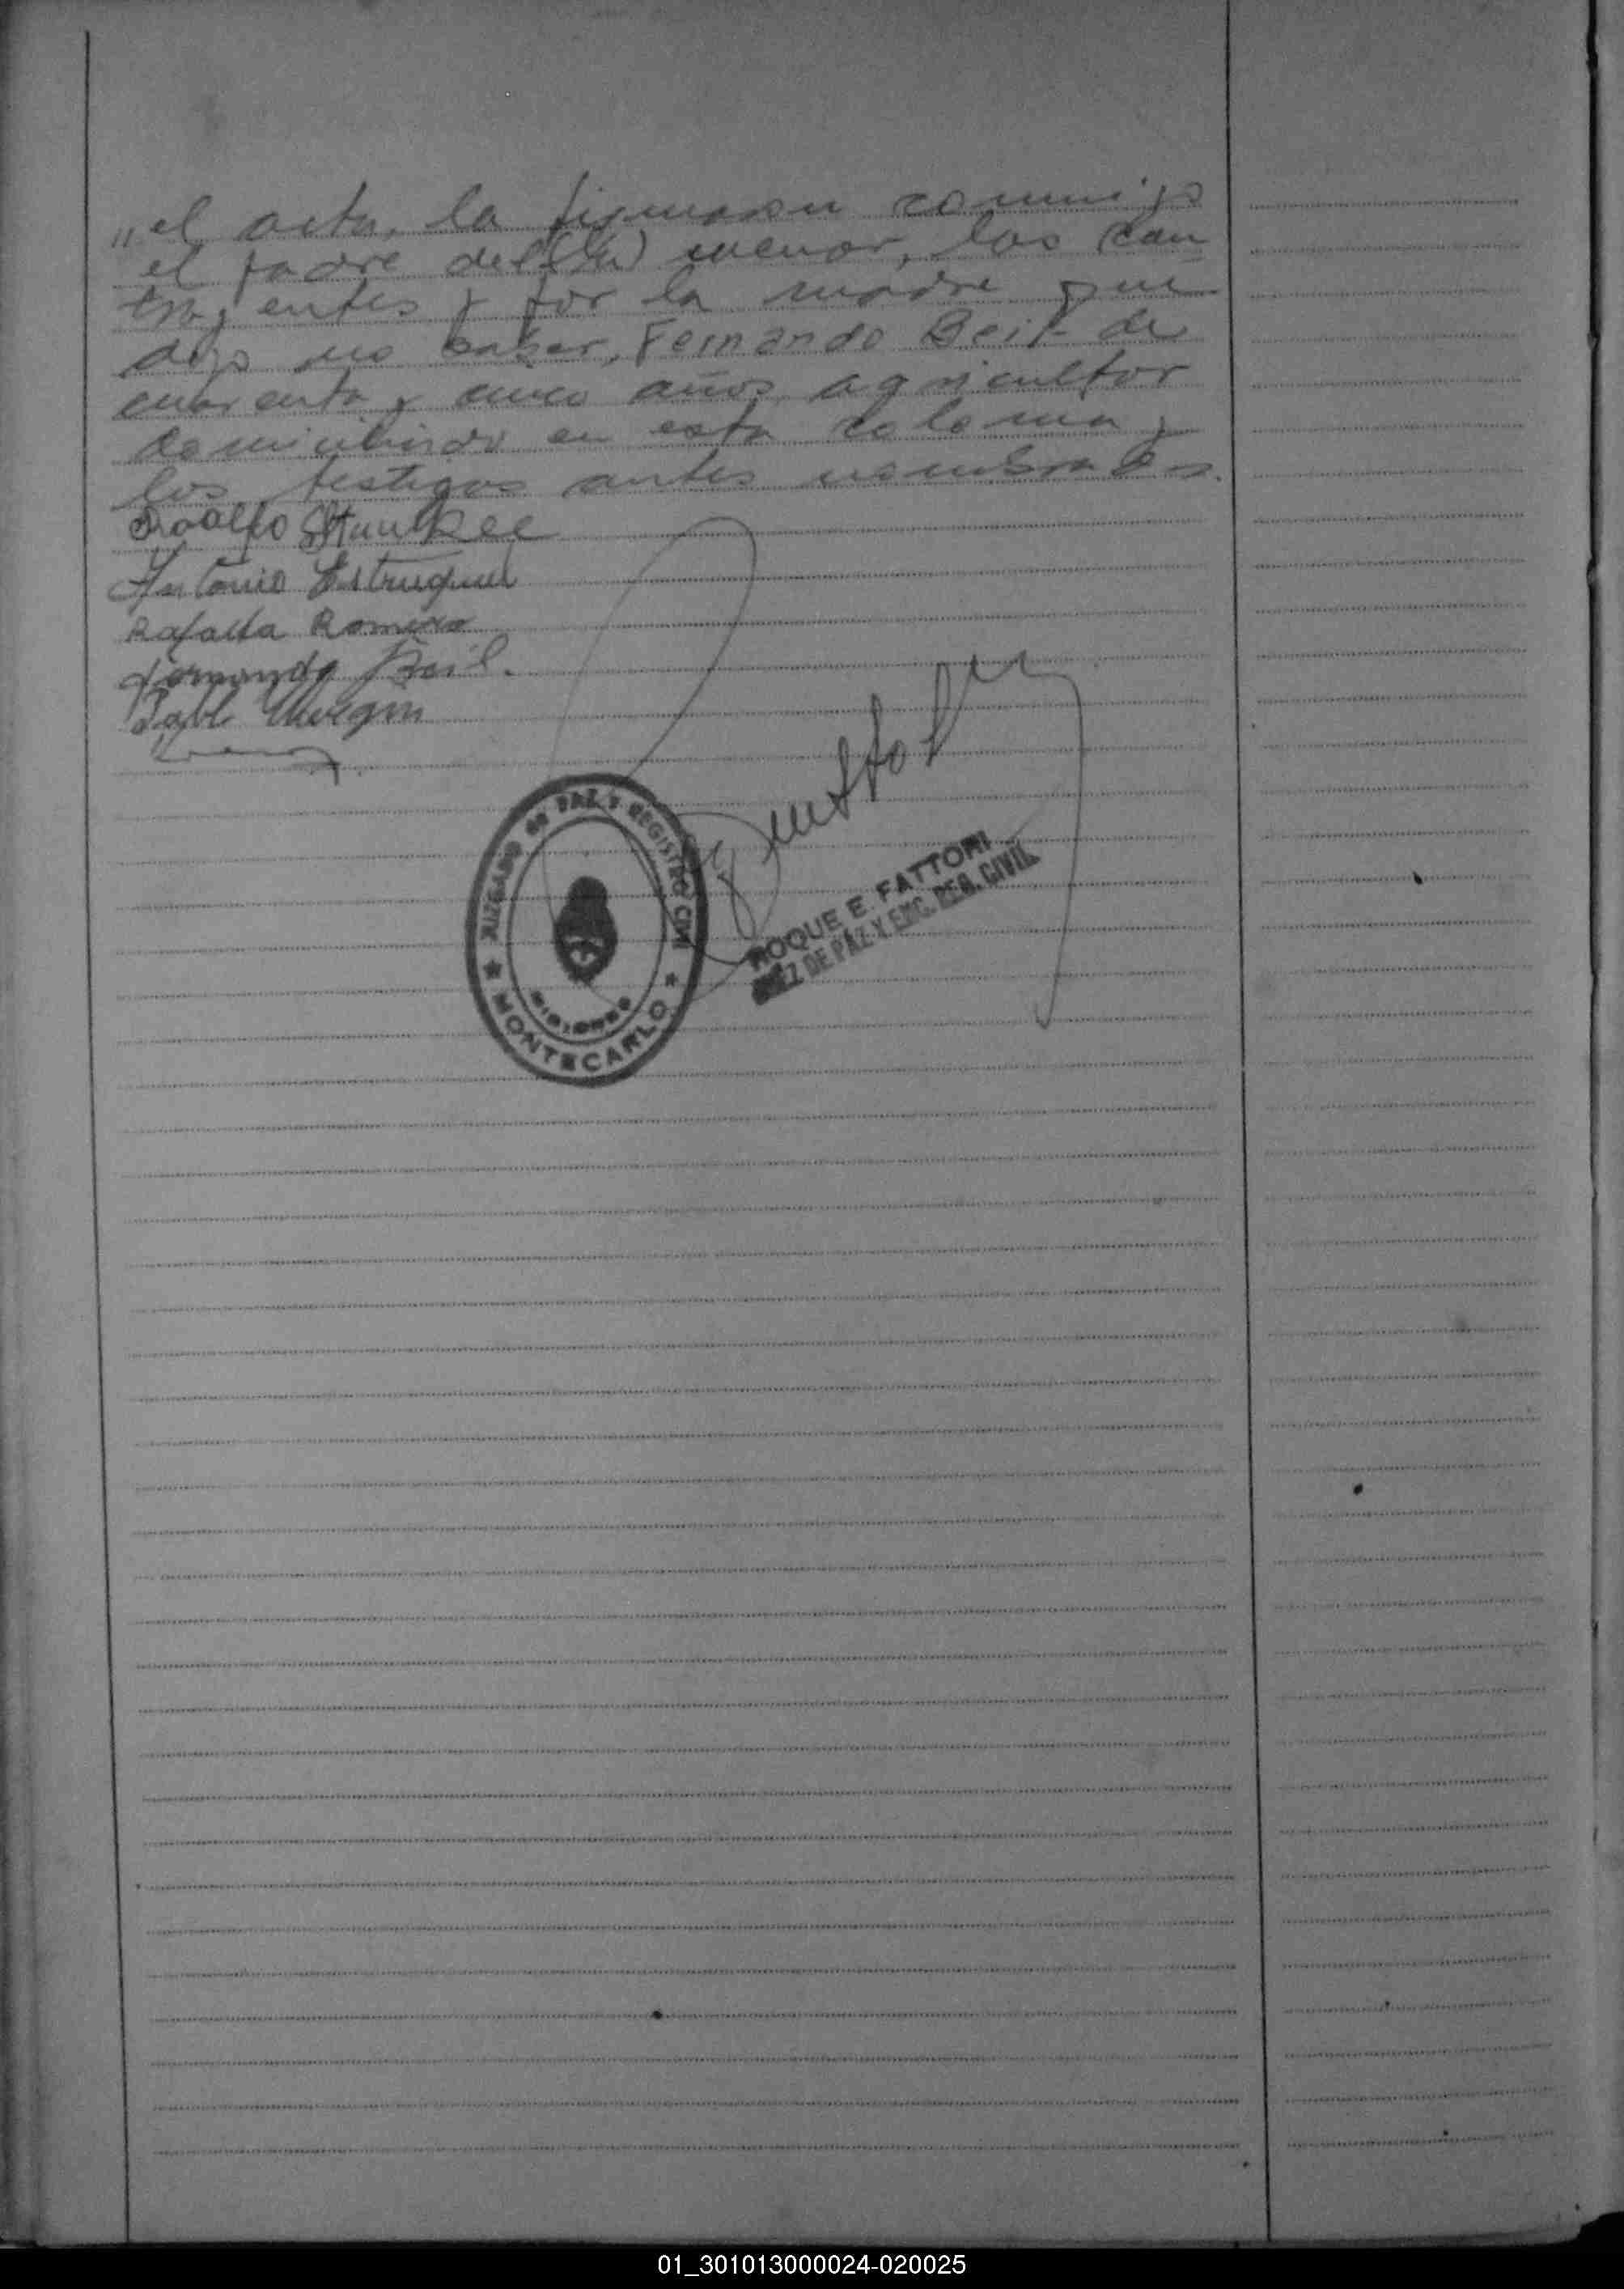 "el acta, la firmaron conmigo
el padre del (la) menor, los con
trayentes y por la madre que
dijo no saber, Fernando Beil de
cuarenta y cinco años agricultor
domiciliado en esta colonia y
los testigos antes nombrados.
Rodolfo
Antonio
Rafaela Romero
Fernando Beil.
JUZGADO de PAZ Y REGISTRO CIVIL
MISIONES
MONTECARLO
ROQUE E. FATTORI
JUEZ DE PAZ Y ENC. REG. CIVIL
01_301013000024-020025